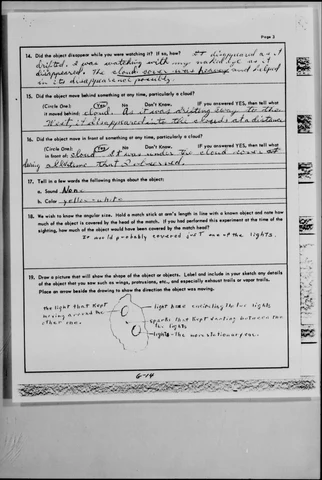 Page 3
14. Did the object disappear while you were watching it? If so, how? It disappeared as I
drifted. I was watching with my naked eye as it
disappeared. The cloud cover was heavy and helped
in its disappearance possibly.
15. Did the object move behind something at any time, particularly a cloud?
(Circle One): Yes No Don't Know. IF you answered YES, then tell what
it moved behind: cloud. As it was drifting away to the
West it disappeared into the clouds at a distance
16. Did the object move in front of something at any time, particularly a cloud?
(Circle One): Yes No Don't Know. IF you answered YES, then tell what
in front of: cloud. It was under the cloud cover at
during all the time that I observed.
17. Tell in a few words the following things about the object:
a. Sound None
b. Color yellow-white
18. We wish to know the angular size. Hold a match stick at arm's length in line with a known object and note how
much of the object is covered by the head of the match. If you had performed this experiment at the time of the
sighting, how much of the object would have been covered by the match head?
It would probably covered just one of the lights.
19. Draw a picture that will show the shape of the object or objects. Label and include in your sketch any details
of the object that you saw such as wings, protrusions, etc., and especially exhaust trails or vapor trails.
Place an arrow beside the drawing to show the direction the object was moving.
the light that kept
moving around the
other one.
light haze encircling the two lights
sparks that kept darting between the
two lights
lights - the more stationary one.
6-14